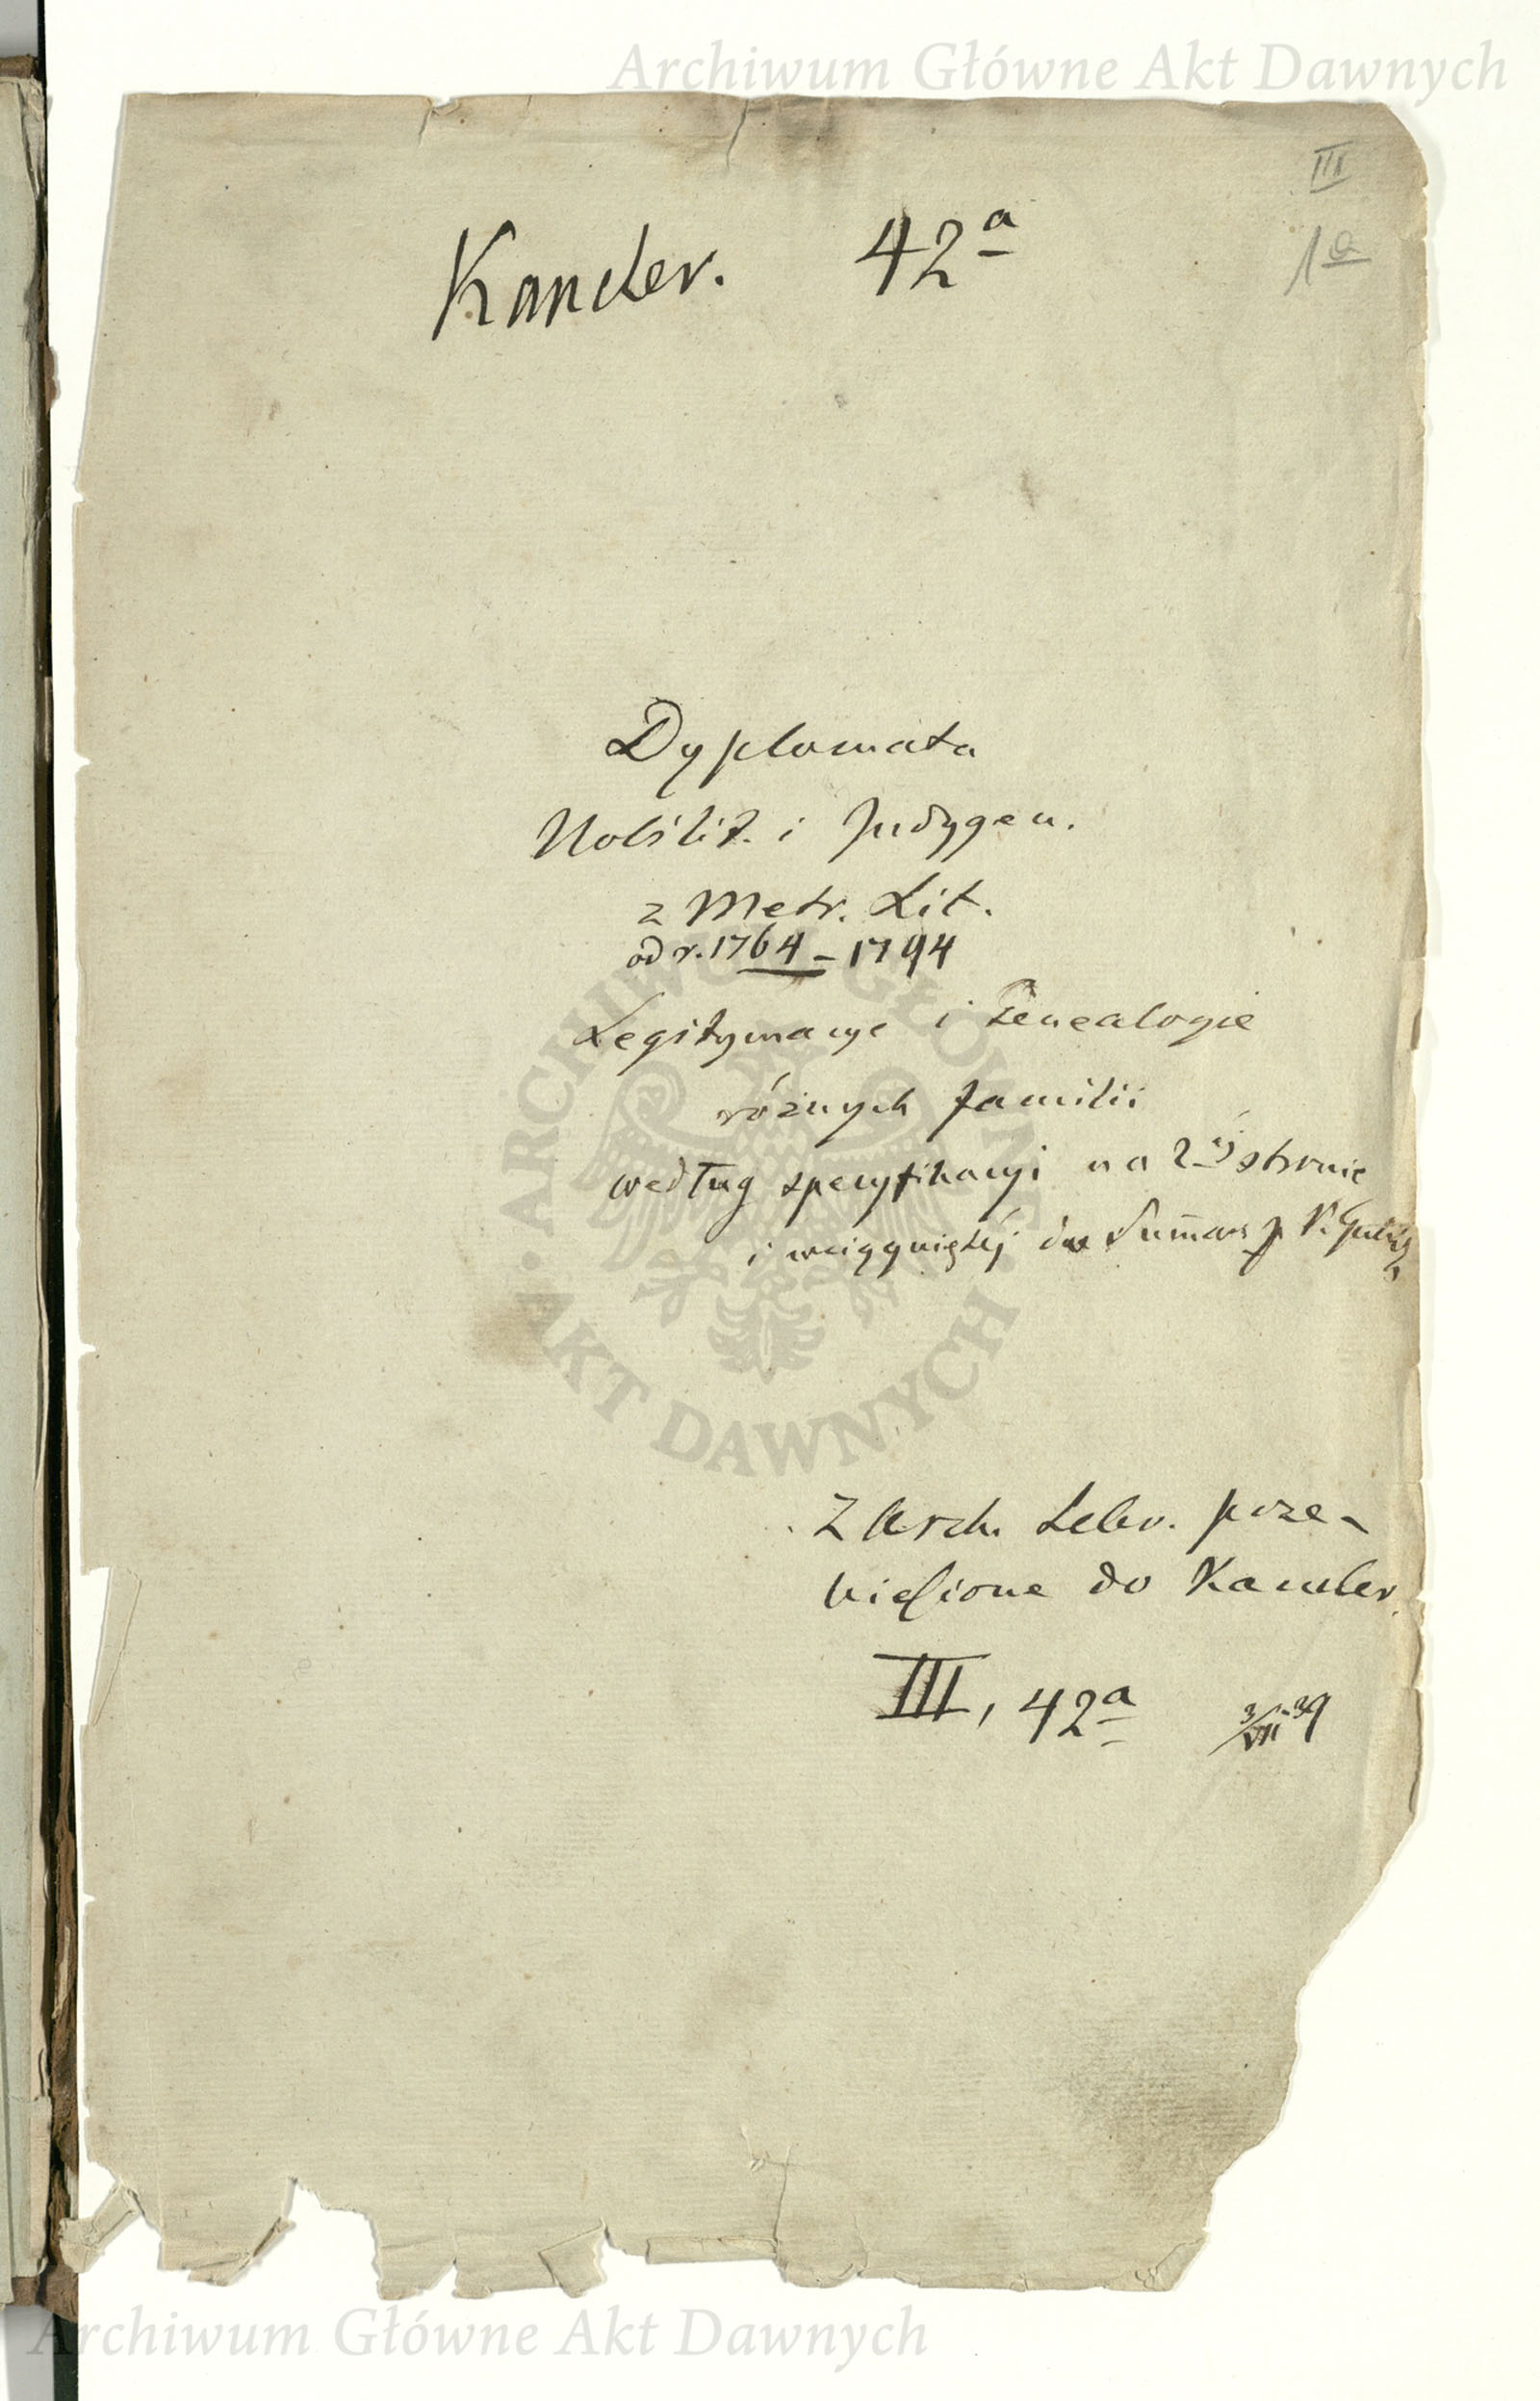 Archiwum Główne Akt Dawnych
III
1a
Kancler. 42a
Dyplomata
Nobilit. i Indygen.
z Metr. Lit.
od r. 1764 – 1794
Legitymacye i Genealogie
różnych familii
według specyfikacyi na 2ej stronie
i wciągniętej do Summar. p.
ARCHIWUM GŁÓWNE
AKT DAWNYCH
Z Arch. prze-
niesione do Kancler.
III, 42a 3/VII 39
Archiwum Główne Akt Dawnych